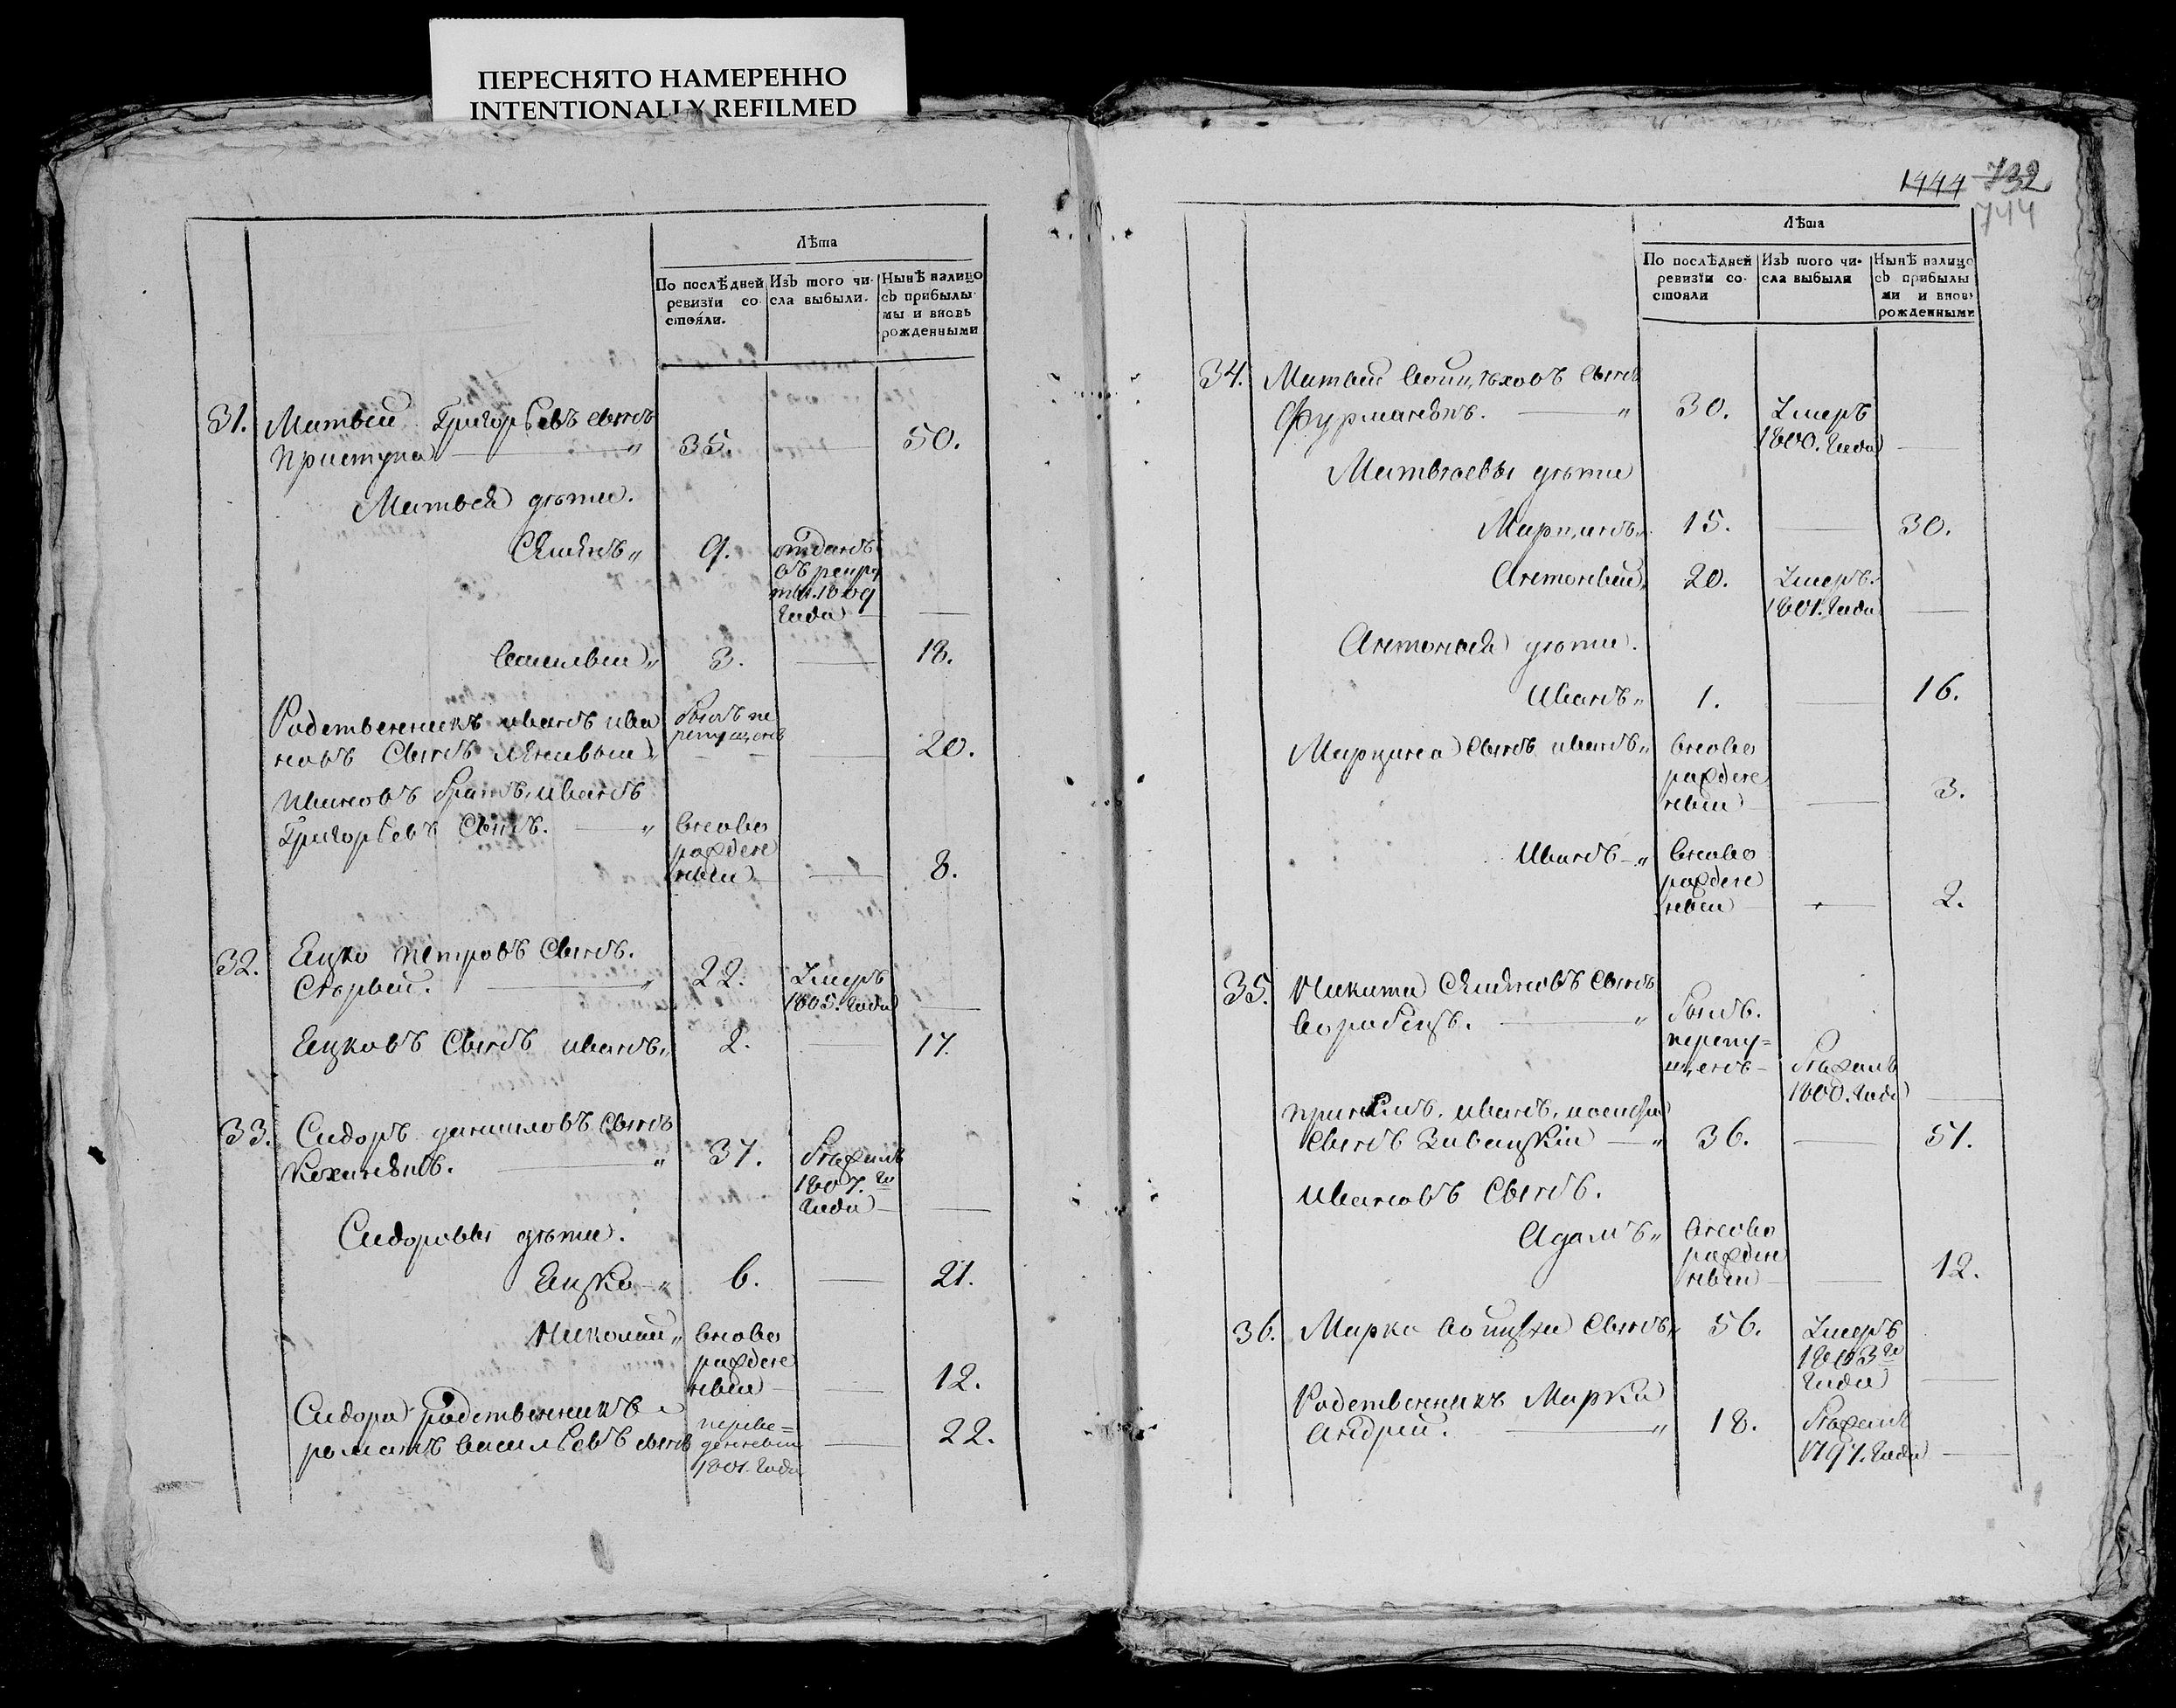 ПЕРЕСНЯТО НАМЕРЕННО
INTENTIONALLY REFILMED
Лѣта
По послѣдней ревизїи со-стояли.
Изъ того чи-сла выбыли.
Нынѣ налицо съ прибылы-мы и вновь рожденными
31. Матвей Григорьевъ сынъ
Приступа „ 35. — 50.
Матвея дѣти.
Семенъ „ 9. отданъ
въ рекру
ты. 1809
Года —
Василий „ 3. — 18.
Родственникъ иванъ ива Былъ пе
новъ Сынъ „ репущенъ — 20.
Ивановъ братъ, иванъ
Григорьевъ Сынъ. „ вново
рожден
ный — 8.
32. Яцко Петровъ Сынъ.
„ 22. Умеръ
1805. Года —
Яцковъ Сынъ иванъ „ 2. — 17.
33. Сидоръ даниловъ Сынъ
„ 37. бежалъ
1807. го
Года —
Сидоровы дѣти.
Яцко „ 6. — 21.
Николай „ вново
рожден
ный — 12.
Сидора родственникъ переве=
романъ васильевъ сынъ денный — 22.
1801. Года
1444 732
744
Лѣта
По послѣдней ревизїи со-стояли
Изъ того чи-сла выбыли
Нынѣ налицо съ прибылы ми и вновь рожденными
34. Матвей Войцѣховъ Сынъ
Фурманюкъ. „ 30. Умеръ
1800. Года —
Матвѣевы дѣти
Марцинъ „ 15. — 30.
Антоний „ 20. Умеръ.
1801. Года —
Антония дѣти.
Иванъ „ 1. — 16.
Марцина Сынъ иванъ „ вново
рожден
ный — 3.
Иванъ „ вново
рожден
ный — 2.
35. Никита Семеновъ Сынъ
Воробецъ. „ Былъ.
перепу=
щенъ — бежалъ
1800. Года —
иванъ,
Сынъ „ 36. — 51.
Ивановъ Сынъ.
Адамъ „ вново
рожден
ный — 12.
36. Марко Сынъ „ 56. Умеръ
1803 го
Года —
Родственникъ Марка
Андрей. „ 18. бежалъ
1797. Года —